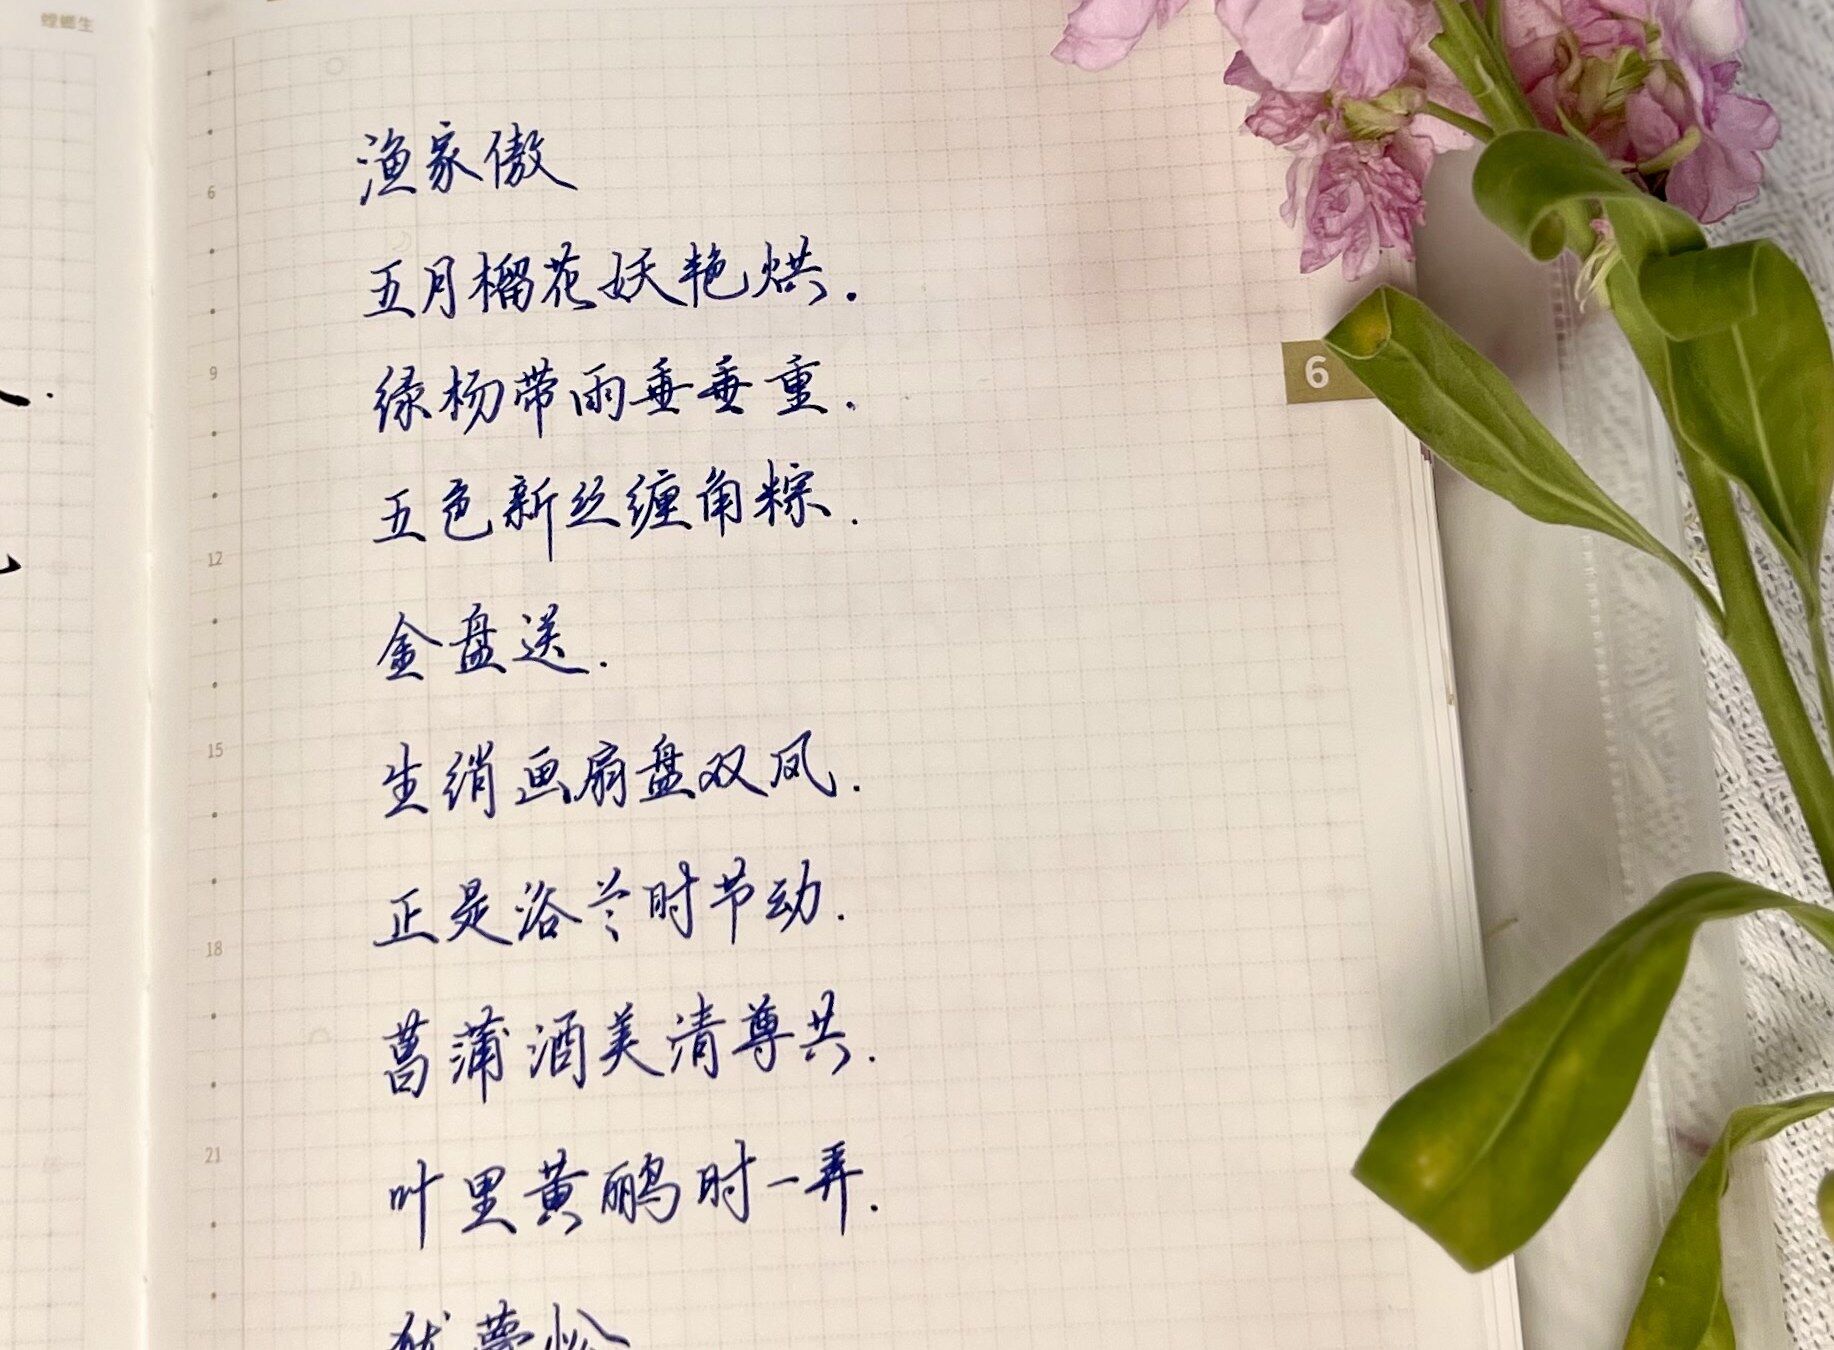 螳螂生
渔家傲
五月榴花妖艳烘.
6
绿杨带雨垂垂重.
9
6
五色新丝缠角粽.
12
金盘送.
15
生绡画扇盘双凤.
正是浴兰时节动.
18
菖蒲酒美清尊共.
21
叶里黄鹂时一弄.
犹